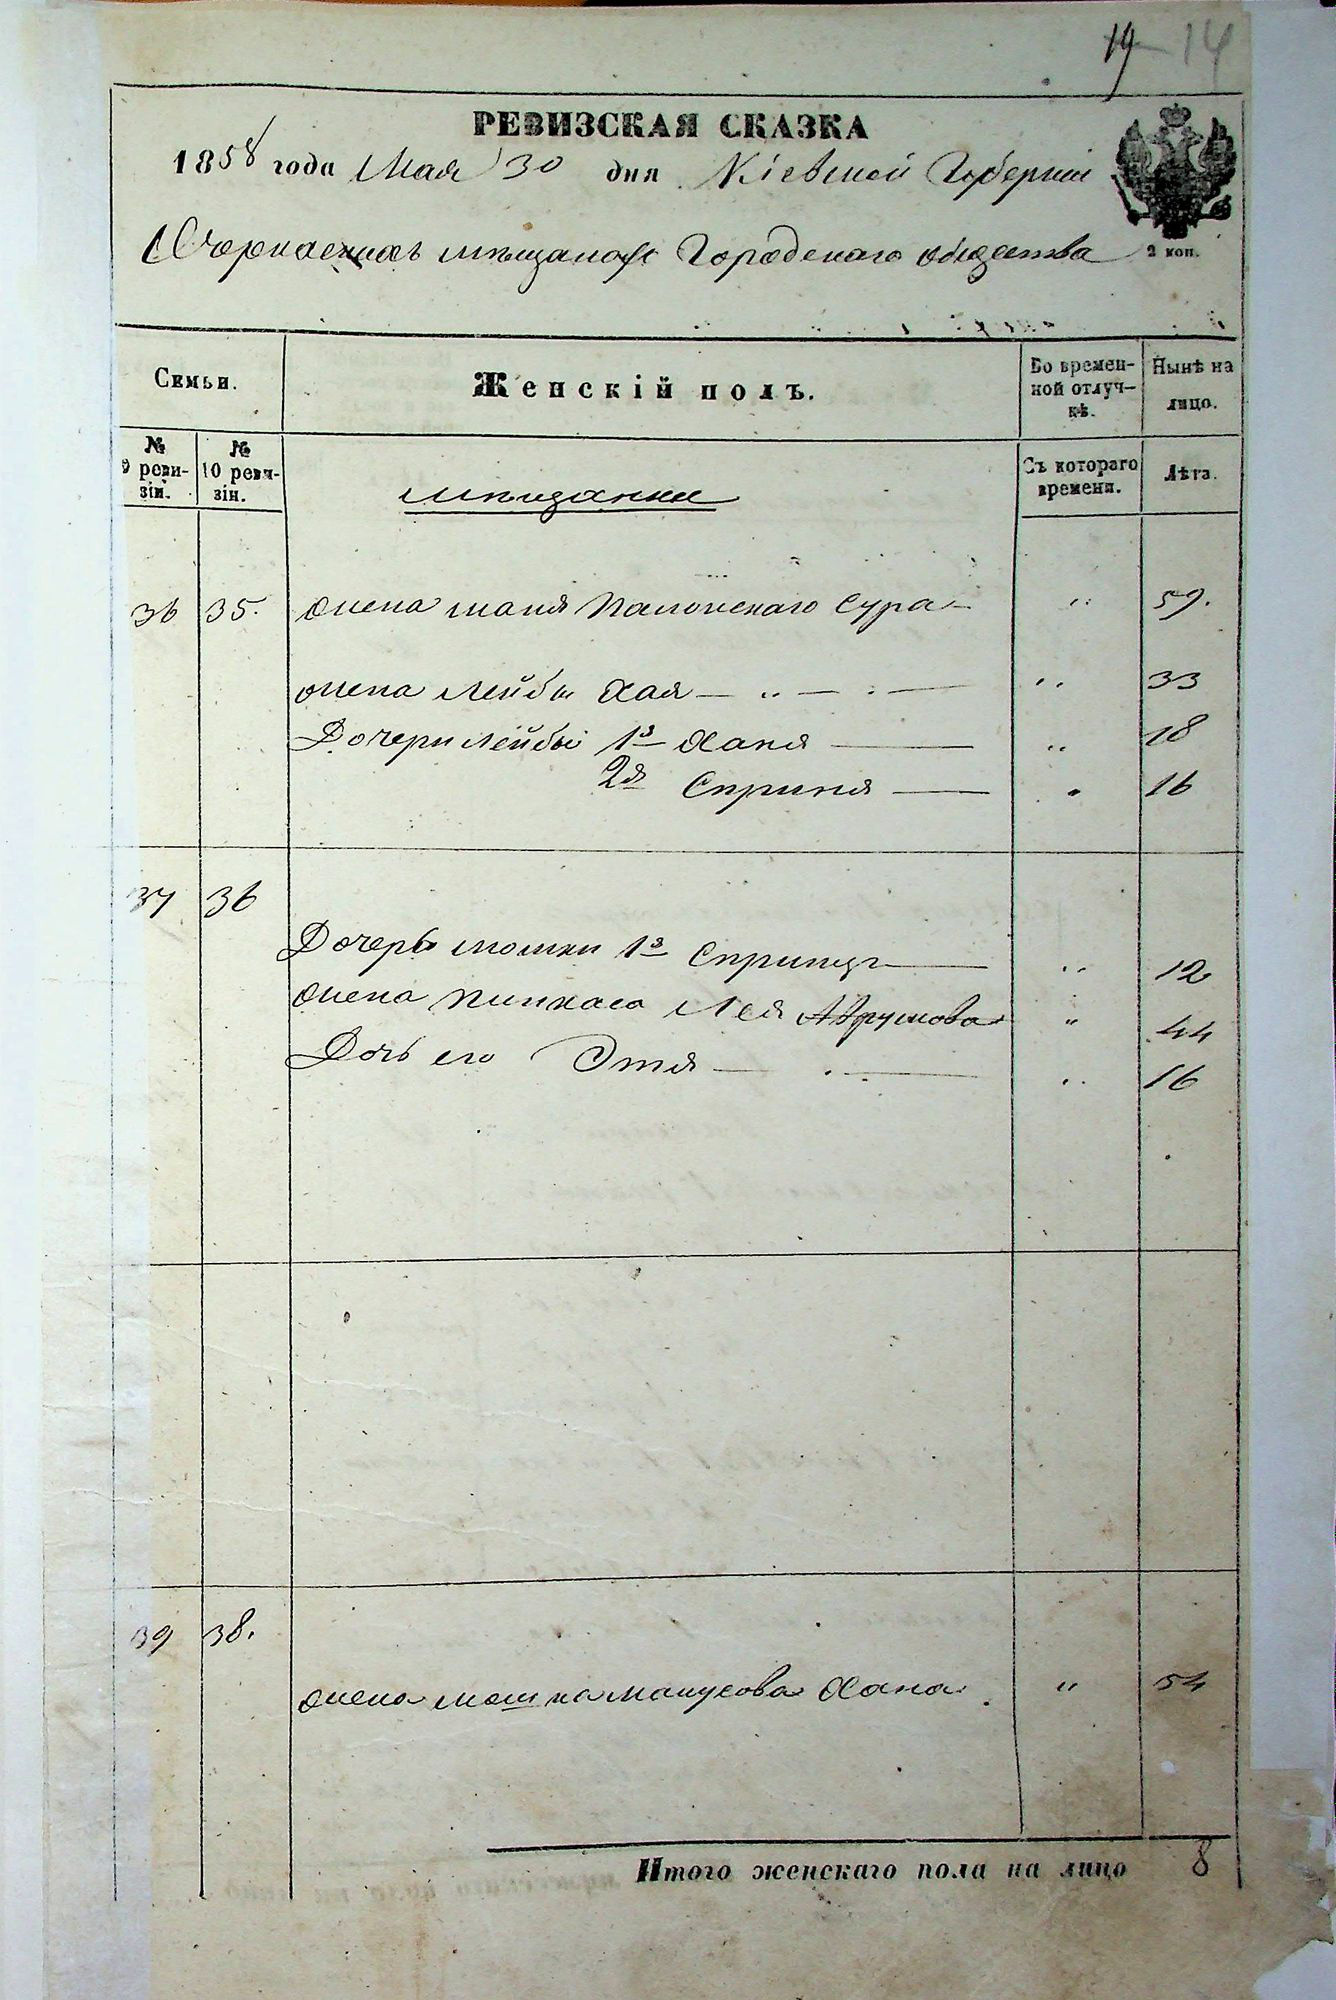 19 14
РЕВИЗСКАЯ СКАЗКА
1858 года Мая 30 дня Кіевской Губерніи
2 коп.
Черкаскихъ мѣщанъ Городскаго общества
Семьи. Женскій полъ. Во времен-ной отлуч-кѣ. Нынѣ на лицо.
№ 9 реви-зіи. № 10 реви-зіи. мѣщанки Съ котораго времени. Лѣта.
36 35. жена Полонскаго Сура — " 59.
жена Лейбы Хая — " — " 33
Дочери Лейбы 1я Ханя — " 18
2я Сприня — " 16
37 36
Дочерь мошки 1я Спринца — " 12
жена Пинхаса Лея Аврумова " 44
Дочь его Этя — " 16
39 38.
жена мошка манусова Хана " 54
Итого женскаго пола на лицо 8